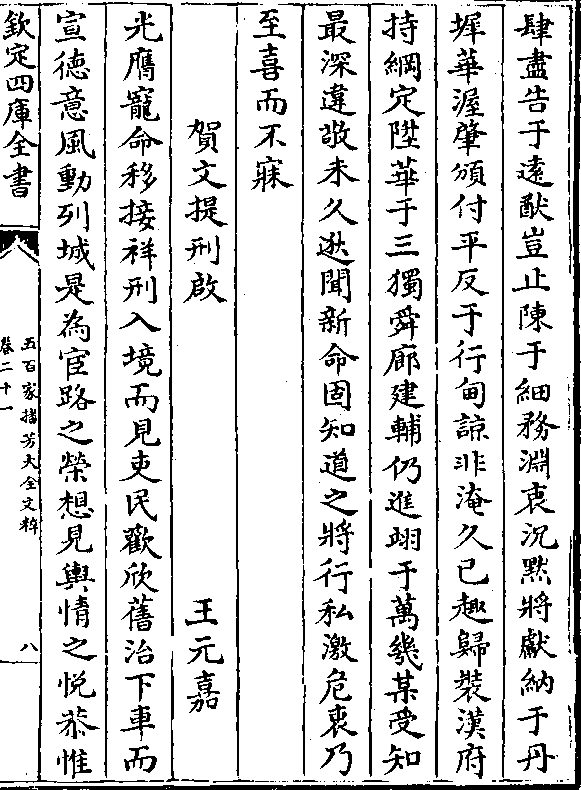 肆盡告于遠猷豈止陳于細務淵衷沉黙將獻納于丹
墀華渥肇頒付平反于行甸諒非淹久已趣歸裝漢府
持綱定陞華于三獨舜廊建輔仍進翊于萬幾某受知
最深違敬未久逖聞新命固知道之將行私激危衷乃
至喜而不寐
賀文提刑啟 王元嘉
光膺寵命移接祥刑入境而見吏民歡欣舊治下車而
宣徳意風動列城是為宦路之榮想見輿情之悦恭惟
欽定四庫全書
五百家播芳大全文粹
卷二十一
八